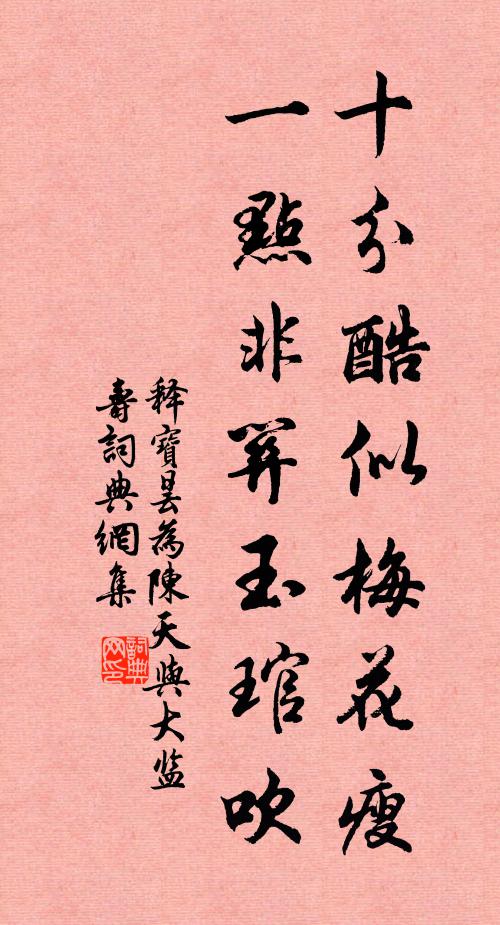 十分酷似梅花瘦
一點非關玉琯吹
释寶曇為陳天與大监
壽詞典網集
詞典网印